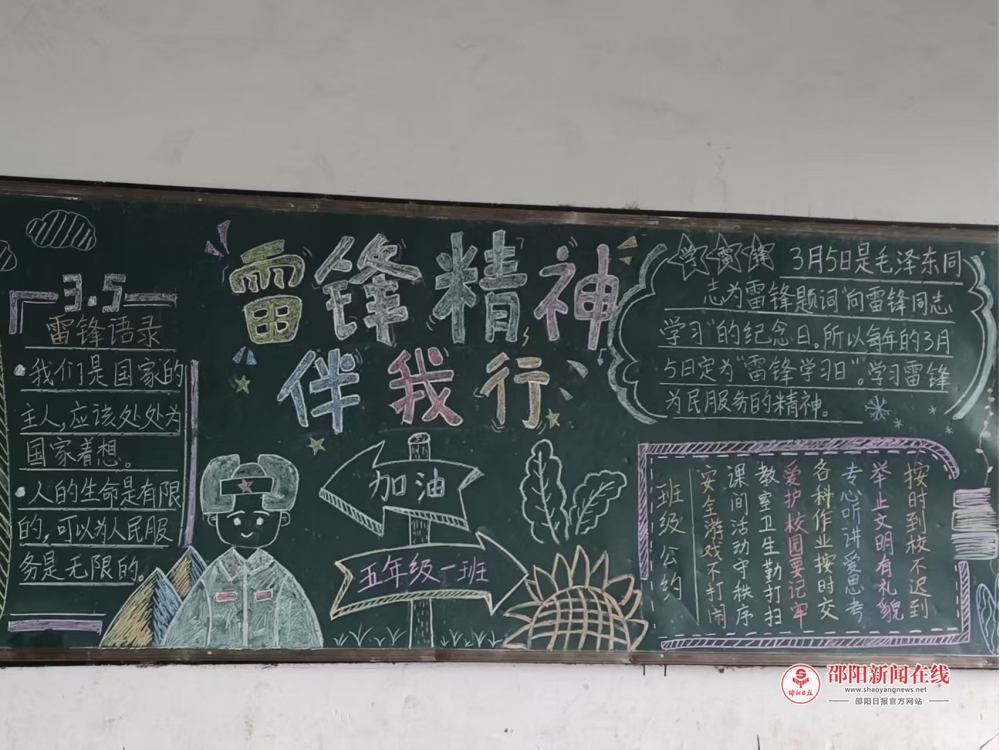 雷锋精神
伴我行
3.5
雷锋语录
·我们是国家的
主人,应该处处为
国家着想。
·人的生命是有限
的,可以为人民服
务是无限的。
加油
五年级一班
学雷锋
3月5日是毛泽东同
志为雷锋题词“向雷锋同志
学习”的纪念日。所以每年的3月
5日定为“雷锋学习日”。学习雷锋
为民服务的精神。
班级公约
按时到校不迟到
举止文明有礼貌
专心听讲爱思考
各科作业按时交
爱护校园要记牢
教室卫生勤打扫
课间活动守秩序
安全游戏不打闹
邵阳日报
邵阳新闻在线
www.shaoyangnews.net
邵阳日报官方网站